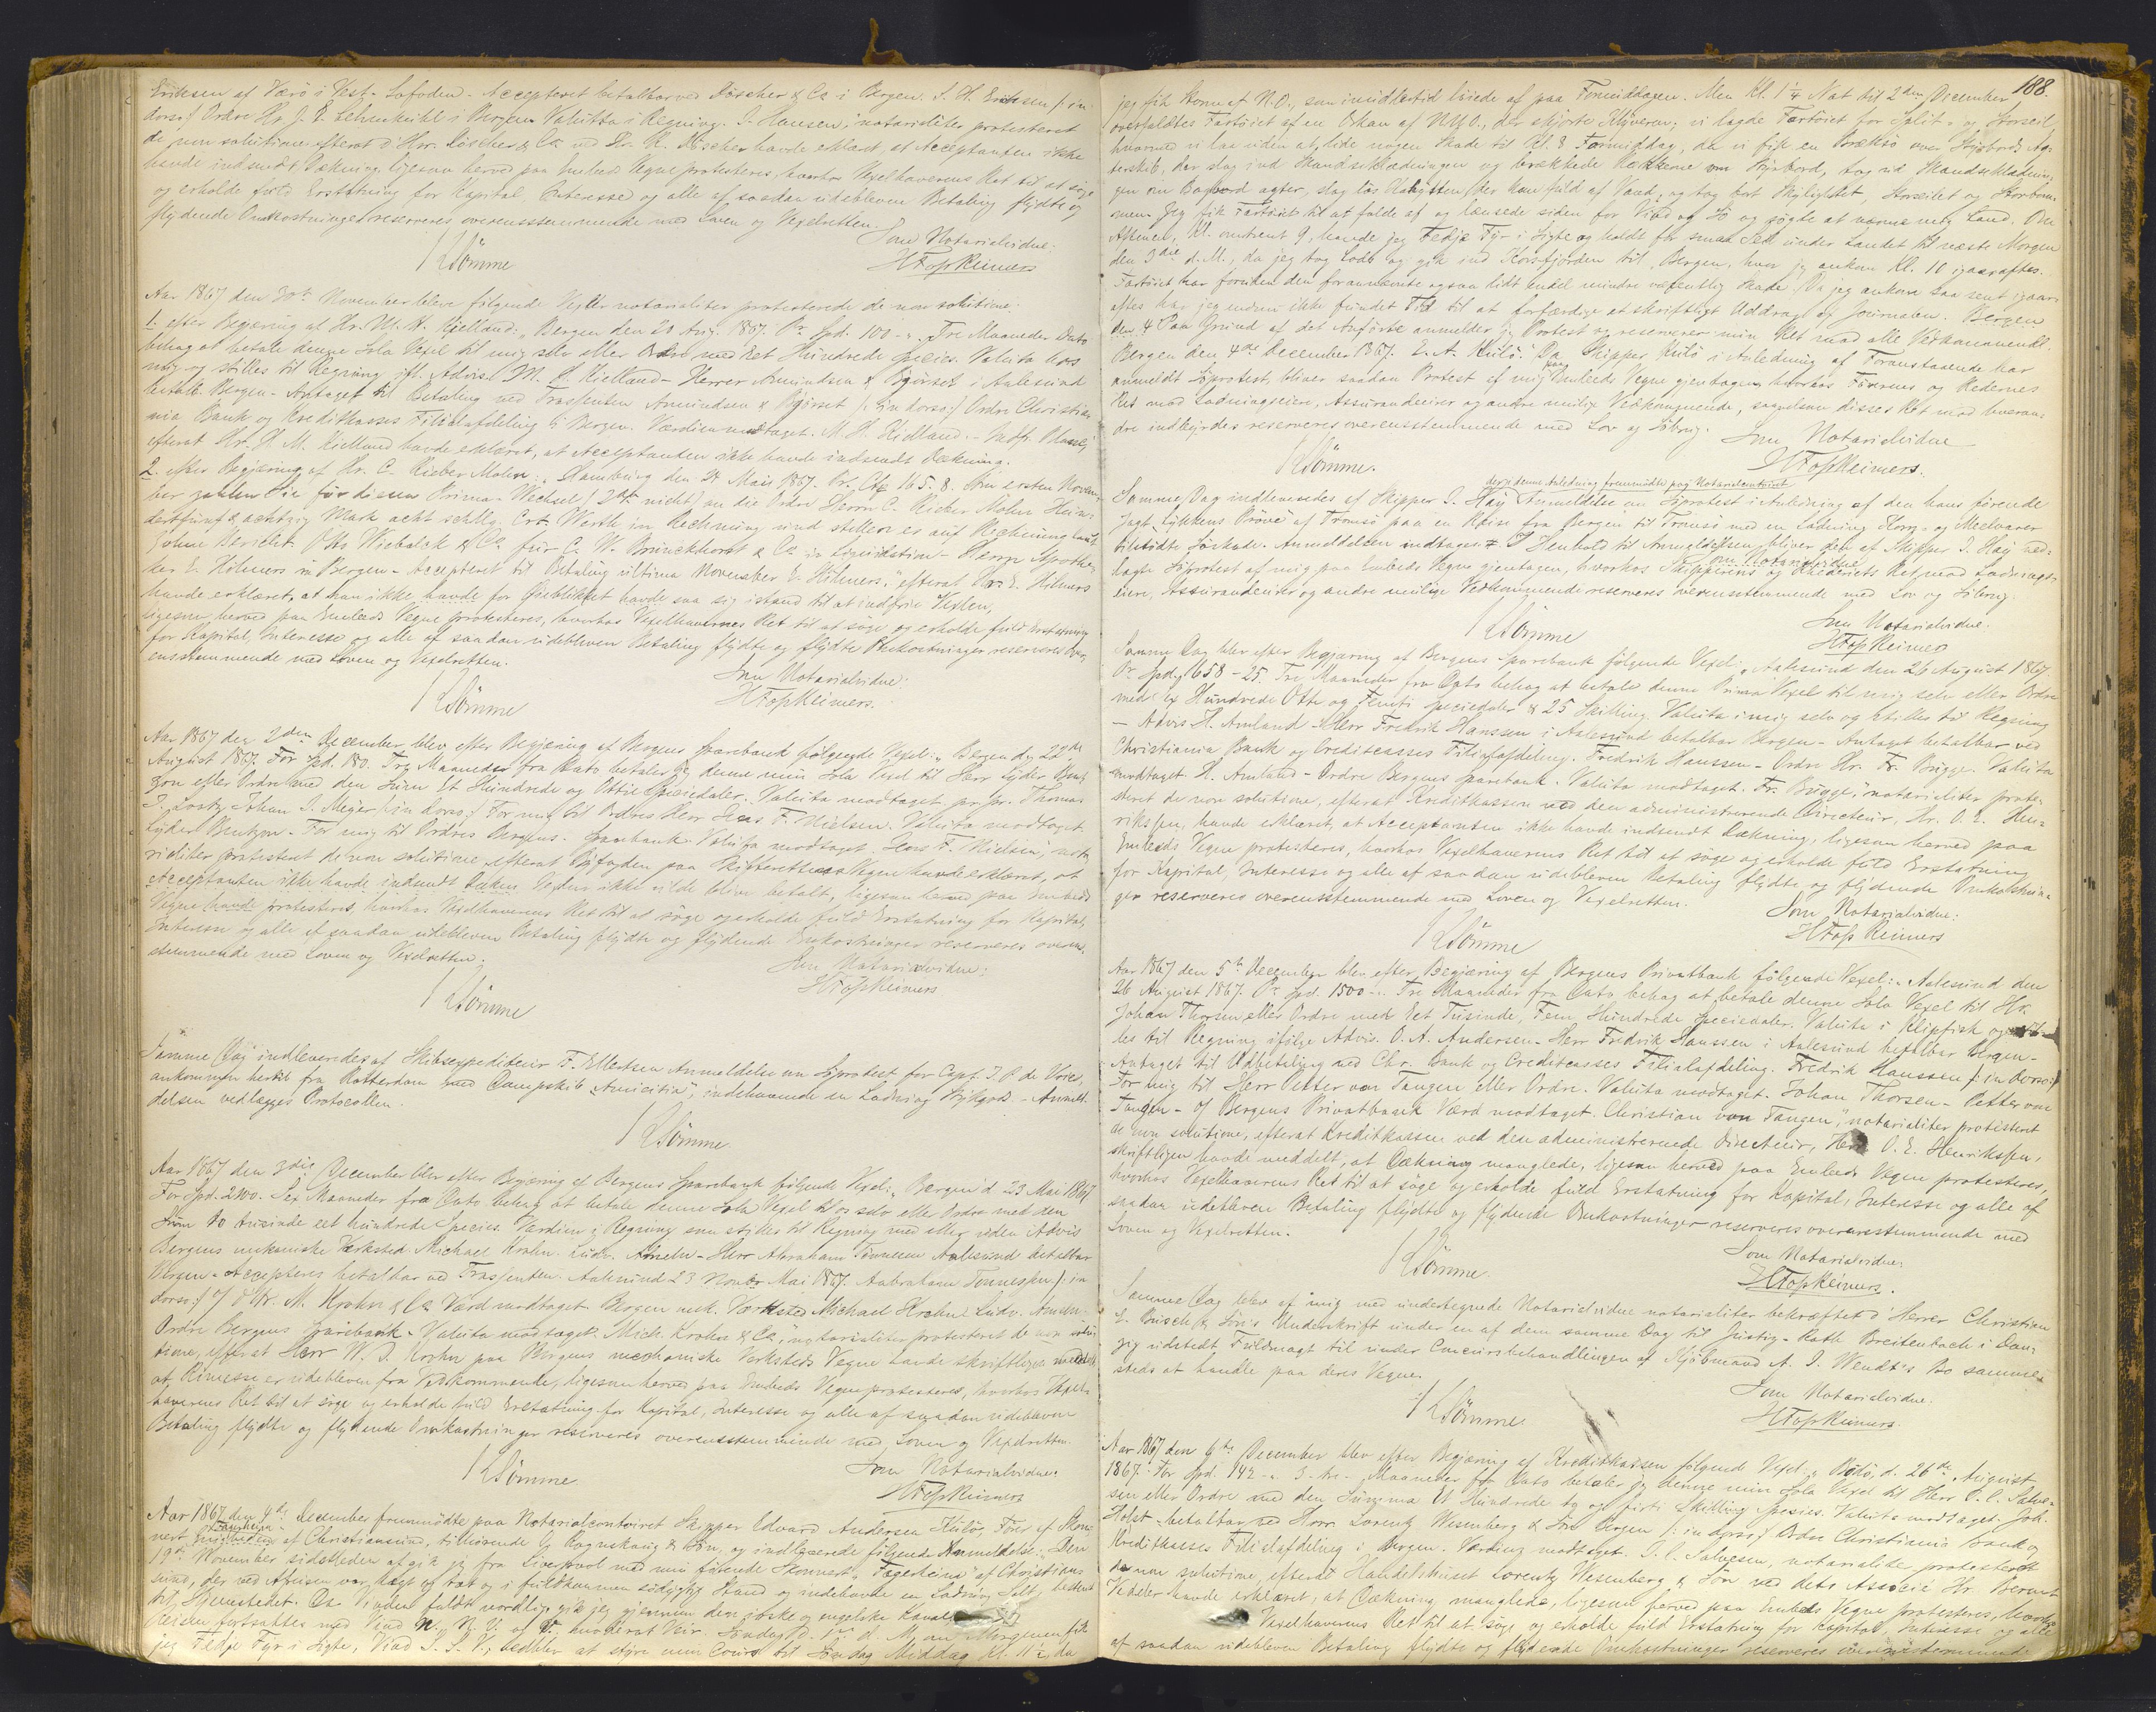 Eriksen af Værö i Vest-Lofoden - Accepteret betalbar ved Döscher & Co i Bergen. S. H. Eriksen /: in
dorso:/ Ordre Hr. J. E. Lehmkuhl i Bergen Valutta i Regning. J. Hansen", notarialiter protesteret
de non solutione efterat d'Hrr. Döscher & Co ved Hr. K. Döscher havde erklært, at Acceptanten ikke
havde indsendt Dækning, ligesom herved paa Embeds Vegne protesteres, hvorhos Vexelhaverens Ret til at söge
og erholde fuld Erstatning for Kapital, Interesse og alle af saadan udebleven Betaling flydte og
flydende Omkostninger reserveres overensstemmende med Loven og Vexelretten.
Som Notarialvidne:
Sömme
HFossReimers
Aar 1867 den 30te November bleve fölgende Vexler notarialiter protesterede de non solutione:
1. efter Begjæring af Hr. M. H. Kielland: "Bergen den 20 Aug. 1867. Pr. Spd. 100 -. Tre Maaneder Dato
behag at betale denne Sola Vexel til mig selv eller Ordre med Et Hundrede Species. Valuta hos
mig og stilles til Regning ifl. Advis. M. H. Kielland - Herrer Amundsen & Bjørset i Aalesund
betalb. Bergen - Antaget til Betaling ved Trassenten Amundsen & Bjørset /: in dorso:/ Ordre Christia-
nia Bank og Kreditkasses Filialafdeling i Bergen. Værdien modtaget. M. H. Kielland.
efterat Hr. M. Kielland havde erklæret, at Acceptanten ikke havde indsendt Dækning.
2. efter Begjæring af Hr. C. Rieber Mohn: "Hamburg den 31 Mai 1867. Pr. Ct 165. 8. Am ersten Novem-
ber zahlen Sie für diesen Prima-Wechsel (2te nicht) an die Ordre Herrn C. Rieber Mohn Hun-
dertfünf & achtzig Mark acht schllg. Crt. Werth in Rechnung und stellen es auf Rechnung laut
Johne Bericht. Otto Wiebalck & Co für C. W. Brunckhorst & Co in Liquidation - Herrn Apothe-
ker E. Hilmers in Bergen - Accepteret til Betaling ultimo November E. Hilmers", efterat Hr. E. Hilmers
havde erklæret, at han ikke havde for Öieblikket havde saa sig istand til at indfrie Vexlen,
ligesom herved paa Embeds Vegne protesteres, hvorhos Vexelhavernes Ret til at söge og erholde fuld Erstatning
for Kapital, Interesse og alle af saadan udebleven Betaling flydte og flydte Omkostninger reserveres over-
ensstemmende med Loven og Vexelretten.
Som Notarialvidne:
Sömme
HFossReimers.
Aar 1867 den 2den December blev efter Begjæring af Bergens Sparebank fölgende Vexel: "Bergen d. 22de
August 1867. For Spd. 180. Tre Maaneder fra Dato betaler jeg denne min Sola Vexel til Herr Lyder Brunt-
zon eller Ordre med den Sum Et Hundrede og Ottti Speciedaler. Valuta modtaget. pr. pr. Thomas
J. Losky Johan J. Meyer /: in dorso:/ For mig til Ordres Herr Jens F. Nielsen. Valuta modtaget.
Lyder Bruntzon - For mig til Ordres Bergens Sparebank. Valuta modtaget. Jens F. Nielsen", nota-
rialiter protesteret de non solutione, efterat Byfogden paa Skifterettens Vegne havde erklæret, at
Acceptanten ikke havde indsendt Dækn Vexlen ikke vilde blive betalt, ligesom herved paa Embeds
Vegne havde protesteres, hvorhos Vexelhaverens Ret til at söge og erholde fuld Erstatning for Kapital,
Interesse og alle af saadan udebleven Betaling flydte og flydende Omkostninger reserveres overens-
stemmende med Loven og Vexelretten.
Som Notarialvidne:
HFossReimers
Sömme
Samme Dag indleveredes af Skibsexpediteur F. Ellertsen Anmeldelse om Söprotest for Capt. J. P. de Vries,
ankommen hertil fra Rotterdam med Dampskib "Amicitia", indehavende en Ladning Stykgods. - Anmel-
delsen vedlægges Protocollen.
Sömme
Aar 1867 den 3die December blev efter Begjæring af Bergens Sparebank fölgende Vexel: "Bergen d. 23 Mai 1867
For Spd. 2100. Sex Maaneder fra Dato behag at betale denne Sola Vexel til os selv eller Ordre med den
Sum to tusinde eet hundrede Species. Værdien i Regning som stilles til Regning med eller uden Advis
Bergens mekaniske Værksted Michael Krohn. Ludv. Ameln - Herr Abraham Tönnesen Aalesund betalbar
Bergen - Accepteres betalbar ved Trassenten. Aalesund 23 Novbr Mai 1867. Aabraham Tönnessen /: in
dorso:/ Hr. M. Krohn & Co Værd modtaget. Bergen mek. Værksted Michael Krohn. Ludv. Amsen-
Ordre Bergens Sparebank - Valuta modtaget. Mich. Krohn & Co", notarialiter protesteret de non solu-
tione, efterat Herr W. D. Krohn paa Bergens mechaniske Værksteds Vegne havde skriftligen meddelt
at Rimesse er udebleven fra Vedkommende, ligesom herved paa Embeds Vegne protesteres, hvorhos Vexel-
haverens Ret til at söge og erholde fuld Erstatning for Kapital, Interesse og alle af saadan udebleven
Betaling flydte og flydende Omkostninger reserveres overensstemmende med Loven og Vexelretten.
Som Notarialvidne:
Sömme
HFossReimers
Aar 1867 den 4de December fremmödte paa Notarialcontoiret Skipper Edvard Andersen Kulö, Förer af Skon-
nert Fagerheim af Christiansund, tilhörende O. Ragnskaug & Sön og indleverede fölgende Anmeldelse: "Den
19de November sidstleden afgik jeg fra Liverpool med min förende Skonnert "Fagerheim" af Christian-
sund, der ved Afreisen var tægt og tæt og i fuldkommen södygtig Stand og indehavde en Ladning Salt, bestemt
til Hjemstedet. Da Vinden faldt nordlig, gik jeg gjennem den irske og engelske Kanal
Reisen fortsattes med Vind N., N. V. og V. moderat Veir. Söndag d. 1ste d. M. om Morgenen fik
jeg Fedje Fyr i Sigte, Vind S. S. V., vedblev at styre min Cours til Söndag Middag Kl. 11½, da
188.
jeg fik Storm af N.O., som imidlertid löiede af paa Formiddagen. Men Kl. 1¼ Nat til 2den December
overfaldtes Fartöiet af en Orkan af N.N.O., der skjörte Klyveren; vi lagde Fartöiet for Split- og Storseil
hvormed vi laa uden at lide nogen Skade til Kl. 8 Formiddag, da vi fik en Bræksö over Styrbords Ag-
terskib, der slog ind Skandseklædningen og brækkede Rækkerne om Styrbord, tog ud Skandseklædnin-
gen om Bagbord agter, slog lös Kahytten, der kom fuld af Vand, og tog bort Skylightet, Storseilet og Storbom-
men. Jeg fik Fartöiet til at falde af og lænsede siden for Vind og Sö og sögte at nærme mig Land. Om
Aftenen, Kl. omtrent 9, havde jeg Fedje Fyr i Sigte og holdt for smaa Seil under Landet til næste Morgen
den 3die d.M., da jeg tog Lods og gik ind Korsfjorden til Bergen, hvor jeg ankom Kl. 10 igaaraftes.
Fartöiet har foruden den forannævnte ogsaa lidt endel mindre væsentlig Skade. Da jeg ankom saa sent igaar-
aftes har jeg endnu ikke fundet Tid til at forfærdige et skriftligt Uddrag af Journalen. Bergen
den 4 Paa Grund af det Anförte anmelder jeg Protest og reserverer min Ret mod alle Vedkommende.
Bergen den 4de December 1867. E. A. Kulö." Da Skipper Kulö i Anledning af Foranstaaende har
anmeldt Söprotest, bliver saadan Protest af mig paa Embeds Vegne gjentagen, hvorhos Förerens og Redernes
Ret mod Ladningseiere, Assurandeurer og andre mulige Vedkommende, saavelsom disses Ret mod hveran-
dre indbyrdes reserveres overensstemmende med Lov og Söbrug.
Som Notarialvidne
Sömme.
HFossReimers.
der i denne Anledning fremmödte paa Notarialcontoiret
Samme Dag indleveredes af Skipper J. Høy Anmeldelse om Söprotest i Anledning af den hans förende
Jagt "Lykkens Pröve" af Tromsö paa en Reise fra Bergen til Tromsö med en Ladning Korn- og Meelvarer
tilstödte Söskade. Anmeldelsen indtages. I Henhold til Anmeldelsen bliver den af Skipper J. Høy ned-
lagte Söprotest af mig paa Embeds Vegne gjentagen, hvorhos Skipperens og Rhederiets Ret mod Ladnings-
eiere, Assurandeurer og andre mulige Vedkommende reserveres overensstemmende med Lov og Söbrug.
Som Notarialvidne.
Sömme
HFossReimers
Samme Dag blev efter Begjæring af Bergens Sparebank fölgende Vexel: "Aalesund den 26 August 1867
Pr Spdlr 658 - 25. Tre Maaneder fra Dato behag at betale denne Prima Vexel til mig selv eller Ordre
med Sex Hundrede Otte og Femti Speciedaler & 25 Skilling. Valuta i mig selv og stilles til Regning
- Advis H. Amland - Herr Fredrik Hanssen i Aalesund betalbar Bergen - Antaget betalbar ved
Christiania Bank og Creditcasses Filialafdeling. Fredrik Hanssen - Ordre Hr. Fr. Brügge. Valuta
modtaget. H. Amland - Ordre Bergens Sparebank. Valuta modtaget. Fr. Brügge", notarialiter prote-
steret de non solutione, efterat Kreditkassen ved den administrerende Directeur, Hr. O. E. Hen-
rikssen, havde erklæret, at Acceptanten ikke havde indsendt Dækning, ligesom herved paa
Embeds Vegne protesteres, hvorhos Vexelhaverens Ret til at söge og erholde fuld Erstatning
for Kapital, Interesse og alle af saadan udebleven Betaling flydte og flydende Omkostnin-
ger reserveres overensstemmende med Loven og Vexelretten.
Som Notarialvidne:
Sömme
HFoss Reimers
Aar 1867 den 5te December blev efter Begjæring af Bergens Privatbank fölgende Vexel: "Aalesund den
26 August 1867. Pr Spd. 1500 -. Tre Maaneder fra Dato behag at betale denne Sola Vexel til Hr.
Johan Thorsen eller Ordre med Eet Tusinde, Fem Hundrede Speciedaler. Valuta i Klipfisk og stil-
les til Regning ifölge Advis. O. A. Andersen - Herr Fredrik Hanssen i Aalesund betalbar Bergen -
Antaget til Udbetaling ved Chr. Bank og Creditcasses Filialafdeling. Fredrik Hanssen /: in dorso:/
For mig til Herr Petter von Tangen eller Ordre. Valuta modtaget. Johan Thorsen - Petter von
Tangen - Bergens Privatbank Værd modtaget. Christian von Tangen", notarialiter protesteret
de non solutione, efterat Kreditkassen ved den administrerende Directeur, Herr O. E. Henrikssen,
skriftligen havde meddelt, at Dækning manglede, ligesom herved paa Embeds Vegne protesteres,
hvorhos Vexelhaverens Ret til at söge og erholde fuld Erstatning for Kapital, Interesse og alle af
saadan udebleven Betaling flydte og flydende Omkostninger reserveres overensstemmende med
Loven og Vexelretten.
Som Notarialvidne:
Sömme.
HFossReimers.
Samme Dag blev af mig med undertegnede Notarialvidne notarialiter bekræftet d'Herrer Christian
E. Busch & Söns Underskrift under en af dem samme Dag til Justiz-Rath Breitenbach i Dan-
zig udstedt Fuldmagt til under Concursbehandlingen af Kjöbmand A. J. Wendt's Bo sammes
steds at handle paa deres Vegne.
Som Notarialvidne.
Sömme
HFossReimers.
Aar 1867 den 6te December blev efter Begjæring af Kreditkassen fölgende Vexel: "Bodö, d. 26de August
1867. For Spd. 142 -. 3 - tre - Maaneder fra Dato betaler jeg denne min Sola Vexel til Herr J. C. Salve-
sen eller Ordre med den Summa Et Hundrede to og firti Skilling Species. Valuta modtaget. Joh.
Holst - betalbar ved Herr Lorentz Wesenberg & Sön Bergen /: in dorso:/ Ordre Christiania Bank og
Kreditkasses Filialafdeling i Bergen. Værdien modtaget. J. C. Salvesen, notarialiter protesteret
de non solutione, efterat Handelshuset Lorentz Wesenberg & Sön ved dets Associe Hr. Berent
Vedeler havde erklæret, at Dækning manglede, ligesom herved paa Embeds Vegne protesteres, hvorhos
Vexelhaverens Ret til at söge og erholde fuld Erstatning for Kapital, Interesse og alle
af saadan udebleven Betaling flydte og flydende Omkostninger reserveres overensstemmende